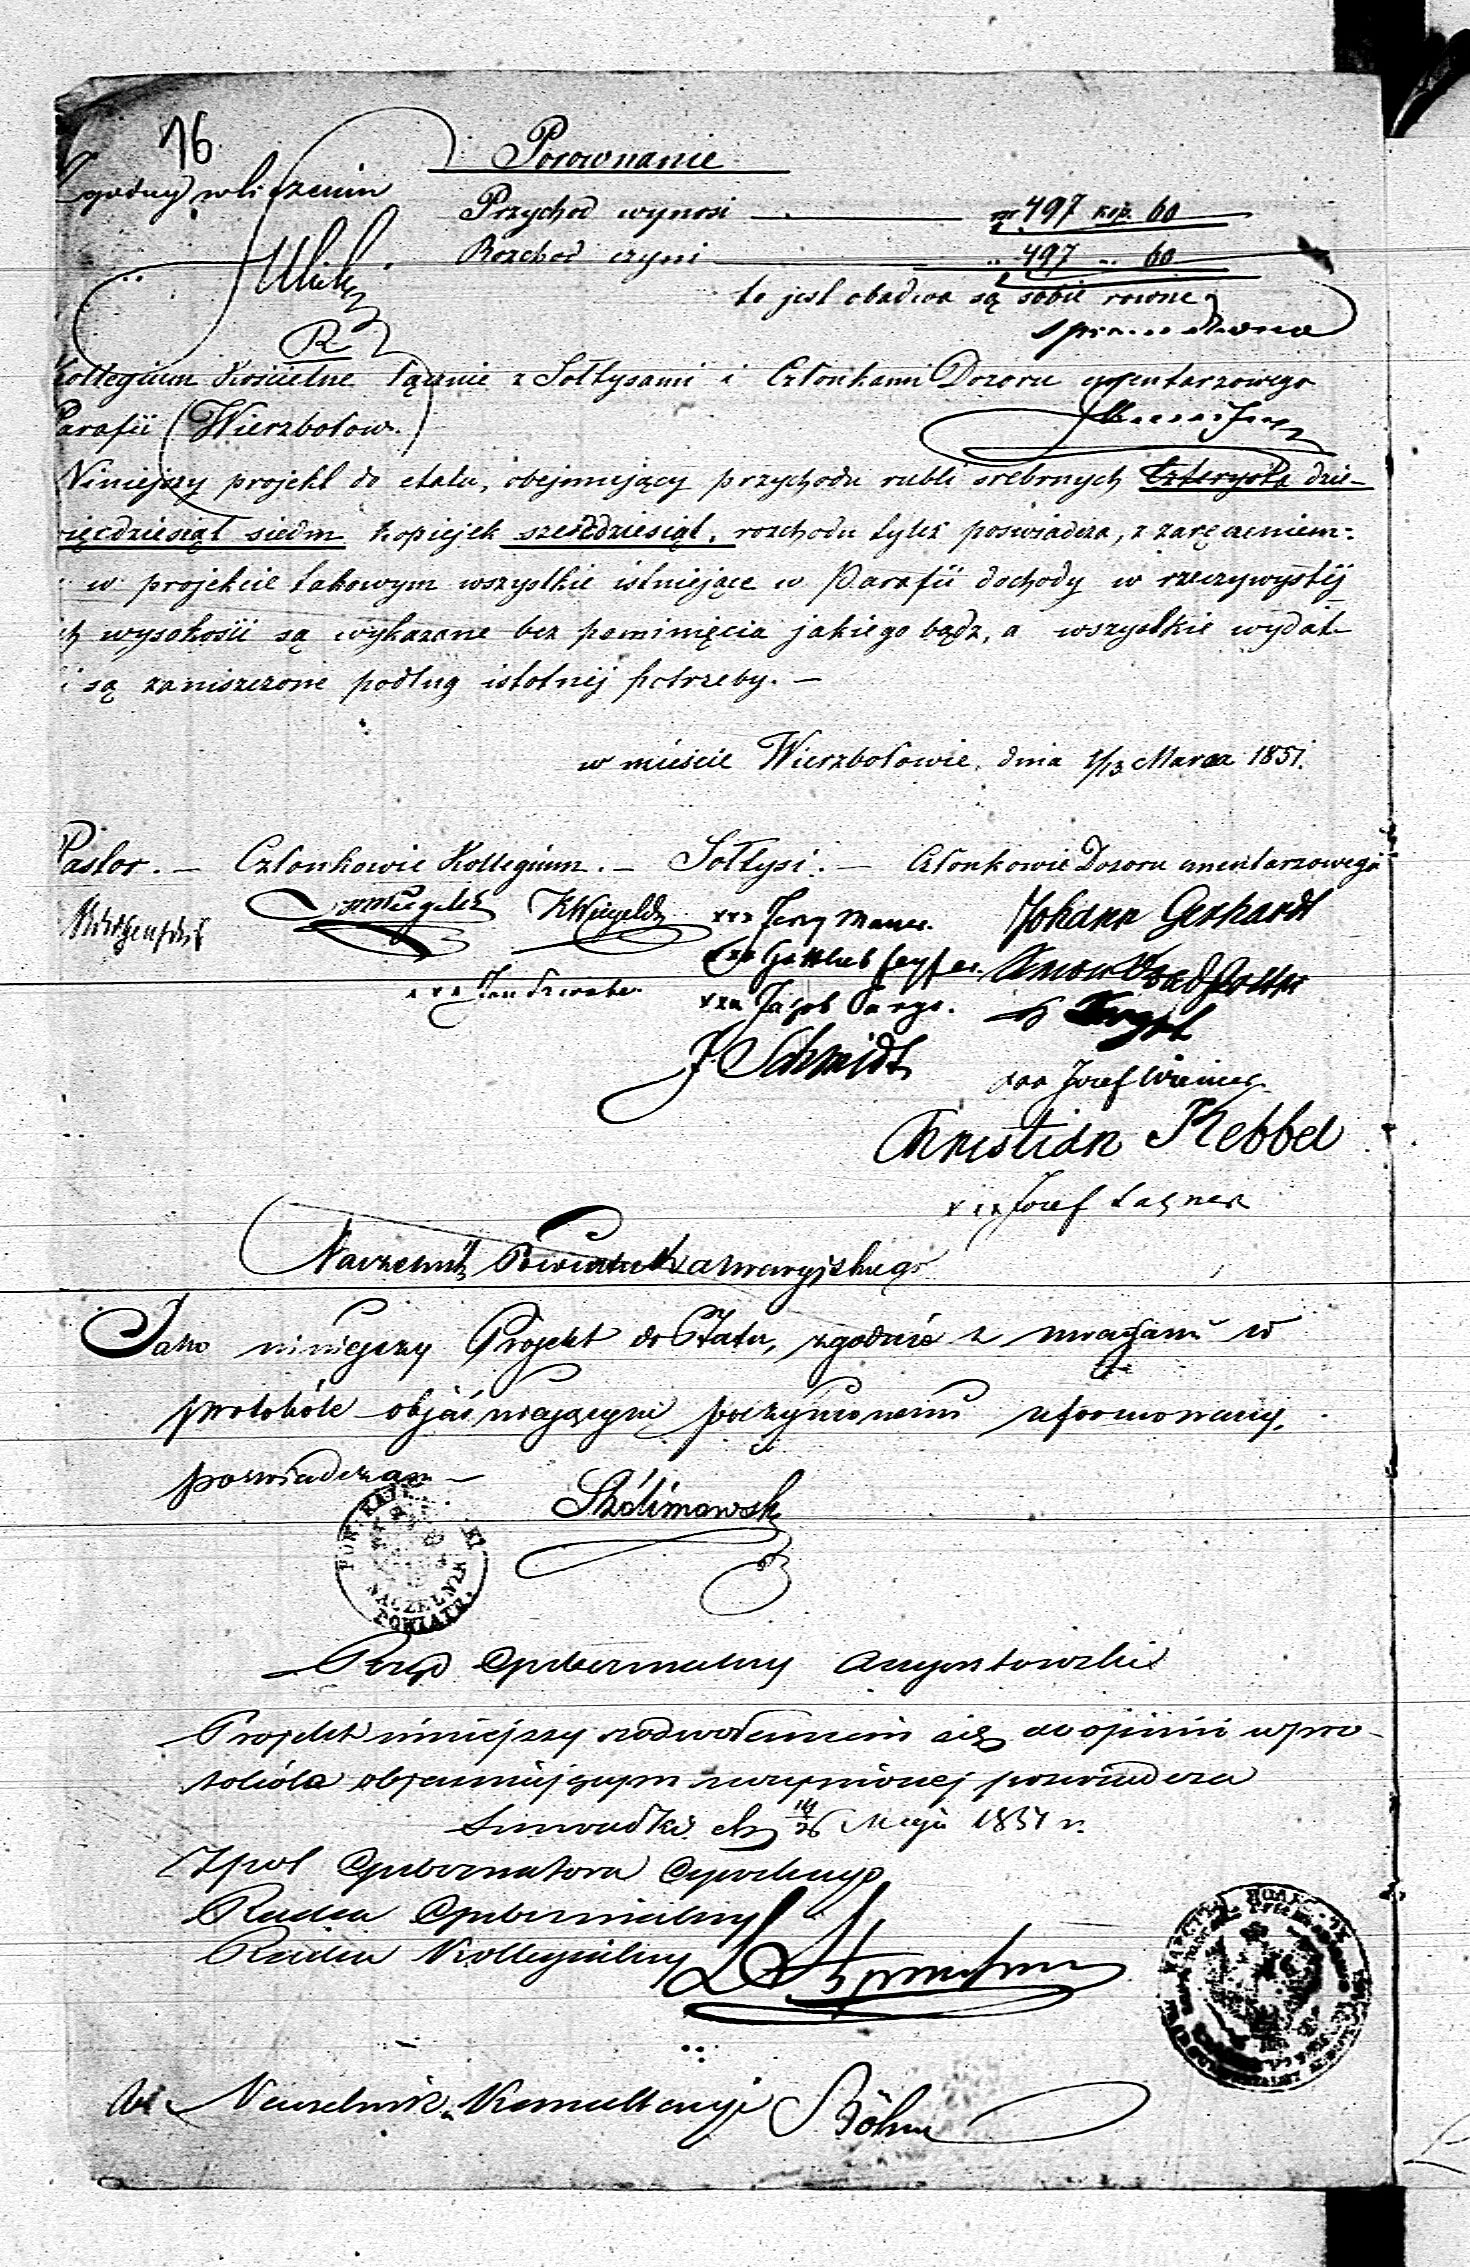 16
Porownanie
Zgodny w liczeniu
Przychod wynosi — rsr. 497 kop. 60
Rozchod czyni — „ 497 „ 60
to jest obadwa są sobie rowne
Kollegium Kościelne łącznie z Sołtysami i Członkami Dozoru cmentarzowego
Parafii Wierzbołow.
Niniejszy projekt do etatu, obejmujący przychodu rubli srebrnych czterysta dzie-
więcdziesiąt siedm kopiejek sześćdziesiąt, rozchodu tyleż poświadcza, z zaręczeniem:
w projekcie takowym wszystkie istniejące w Parafii dochody w rzeczywistéj
ich wysokości są wykazane bez pominięcia jakiego bądz, a wszystkie wydat-
ki są zamiszczone podług istotnéj potrzeby. —
w mieście Wierzbołowie, dnia 1/13 Marca 1851.
Pastor. — Członkowie Kollegium. — Sołtysi. — Członkowie Dozoru cmentarzowego
xxx Jerzy Maner. Johann Gerhardt
xxx Gottlieb
xxx Jan xxx Jacob
J Schmidt
xxx Josef Wiemer
Christian Kebbel
xxx Josef Lagner
Naczelnik Powiatu Kalwaryjskiego
Jako niniejszy Projekt do Etatu, zgodnie z uwagami w
protokóle objaśniającym poczynionemi uformowany,
poświadczam —
NACZELNIK POWIATU
Rząd Gubernialny Augustowski
Projekt niniejszy z odwołaniem się do opinii w pro-
tokóle objaśniającym uczynionej poświadcza
Suwałki d. 14/26 Maja 1851 r.
Gubernatora Cywilnego
Radca Gubernialny
Radca Kollegialny
Naczelnik Kancellaryi Böhm